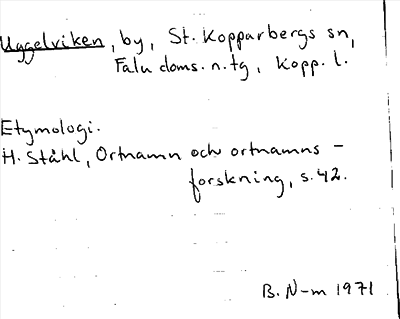 Uggelviken, by, St. Kopparbergs sn,
Falu doms. n. tg, Kopp. l.
Etymologi.
H. Ståhl, Ortnamn och ortnamns-
forskning, s. 42.
B. N-m 1971